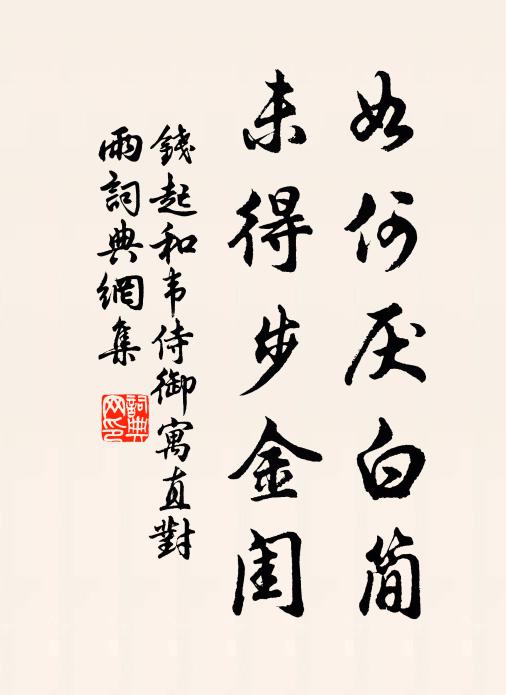 如何厌白简
未得步金闺
錢起和韦侍御寓直對
雨詞典網集
詞典
网印